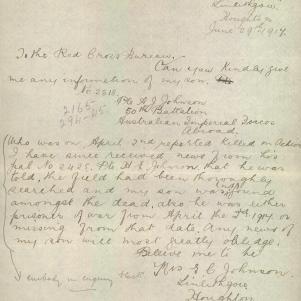 Linlithgow
Houghton
June 29th 1917.
To the Red Cross Bureau, -
Can you kindly give
me any information of my son.
No 2818.
Pte A J Johnson
2165
50th Battalion
294-05
Australian Imperial Forces
Abroad.
Who was on April 2nd reported killed in Action
I have since received news from his
pal No 2425. Pte H. Johnson that he was
told, the field had been thoroughly
searched and my son was not found
amongst the dead, also he was either
prisoner of war from April the 2nd 1917. or
missing from that date. Any news of
my son will most greatly oblige.
Believe me to be
Mrs E C Johnson.
Linlithgow
Houghton